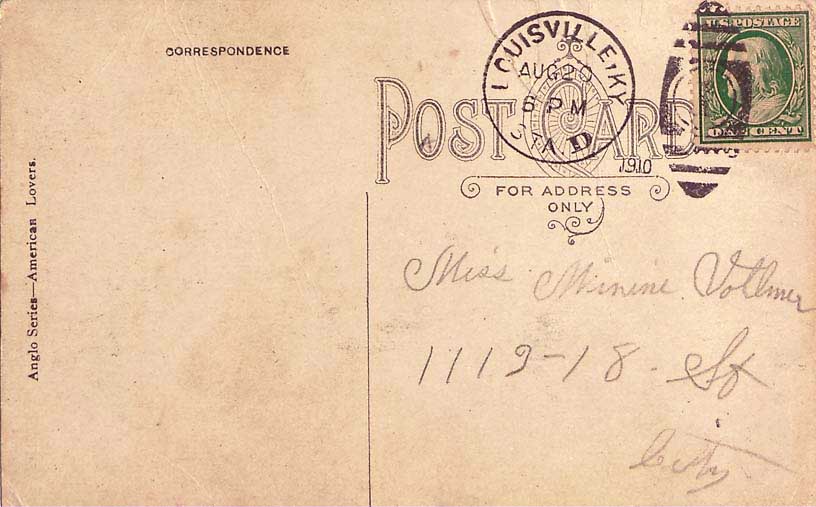 CORRESPONDENCE
LOUISVILLE, KY.
AUG 20
8 PM
STA. D
1910
U.S. POSTAGE
ONE CENT
POST CARD
FOR ADDRESS
ONLY
Anglo Series—American Lovers.
Miss. Minine Vollmer
1119-18. St
City